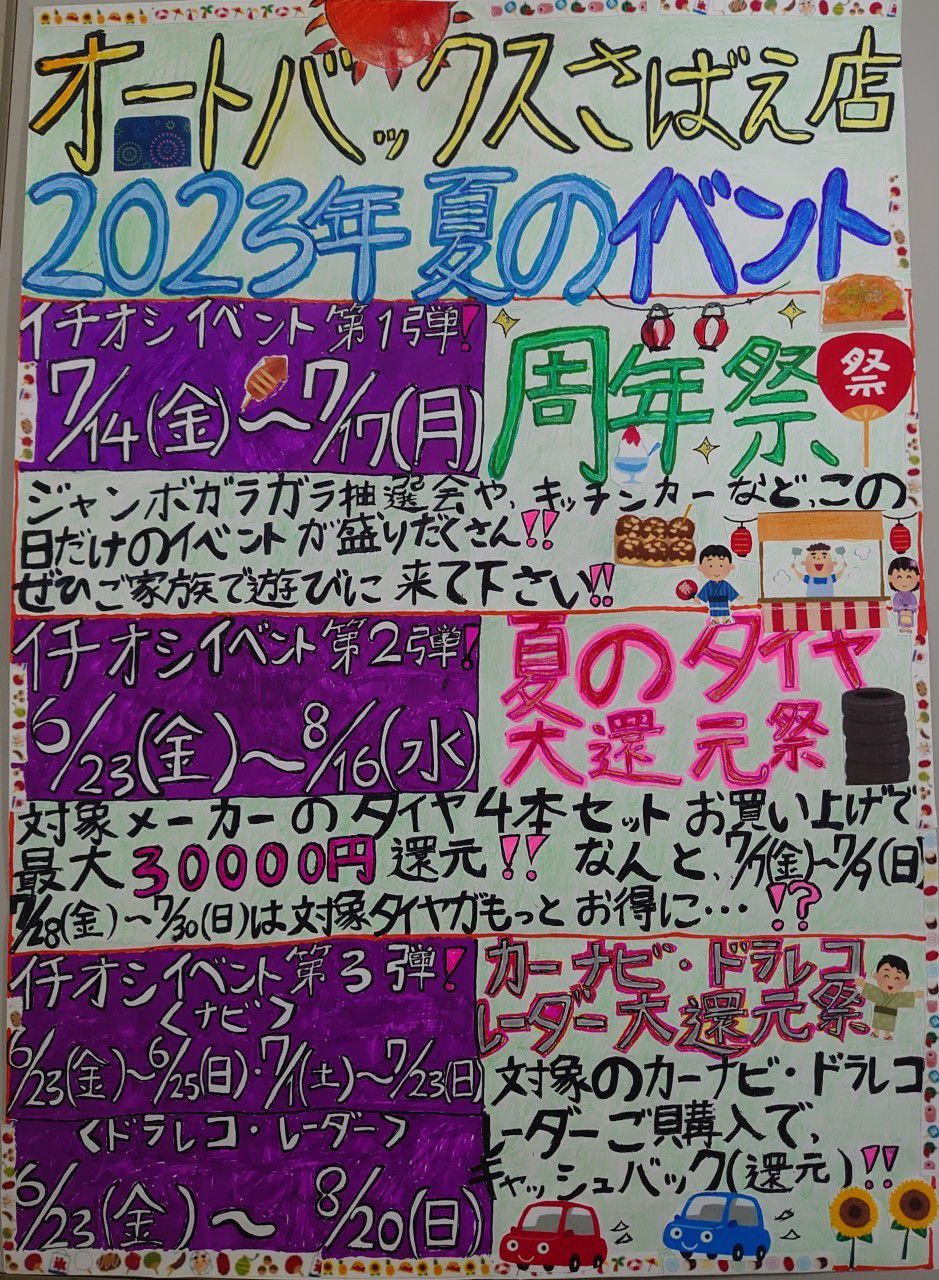 オートバックスさばえ店
2023年夏のイベント
イチオシイベント第1弾!
7/14(金)～7/17(月)
周年祭
祭
ジャンボガラガラ抽選会や、キッチンカーなど、この
日だけのイベントが盛りだくさん!!
ぜひご家族で遊びに来て下さい!!
イチオシイベント第2弾!
6/23(金)～8/16(水)
夏のタイヤ
大還元祭
対象メーカーのタイヤ4本セットお買い上げで
最大30000円還元!! なんと、7/7(金)～7/9(日)
7/28(金)～7/30(日)は対象タイヤがもっとお得に…!?
イチオシイベント第3弾!
<ナビ>
6/23(金)～6/25(日)・7/1(土)～7/23(日)
<ドラレコ・レーダー>
6/23(金)～8/20(日)
カーナビ・ドラレコ
レーダー大還元祭
対象のカーナビ・ドラレコ
レーダーご購入で、
キャッシュバック(還元)!!